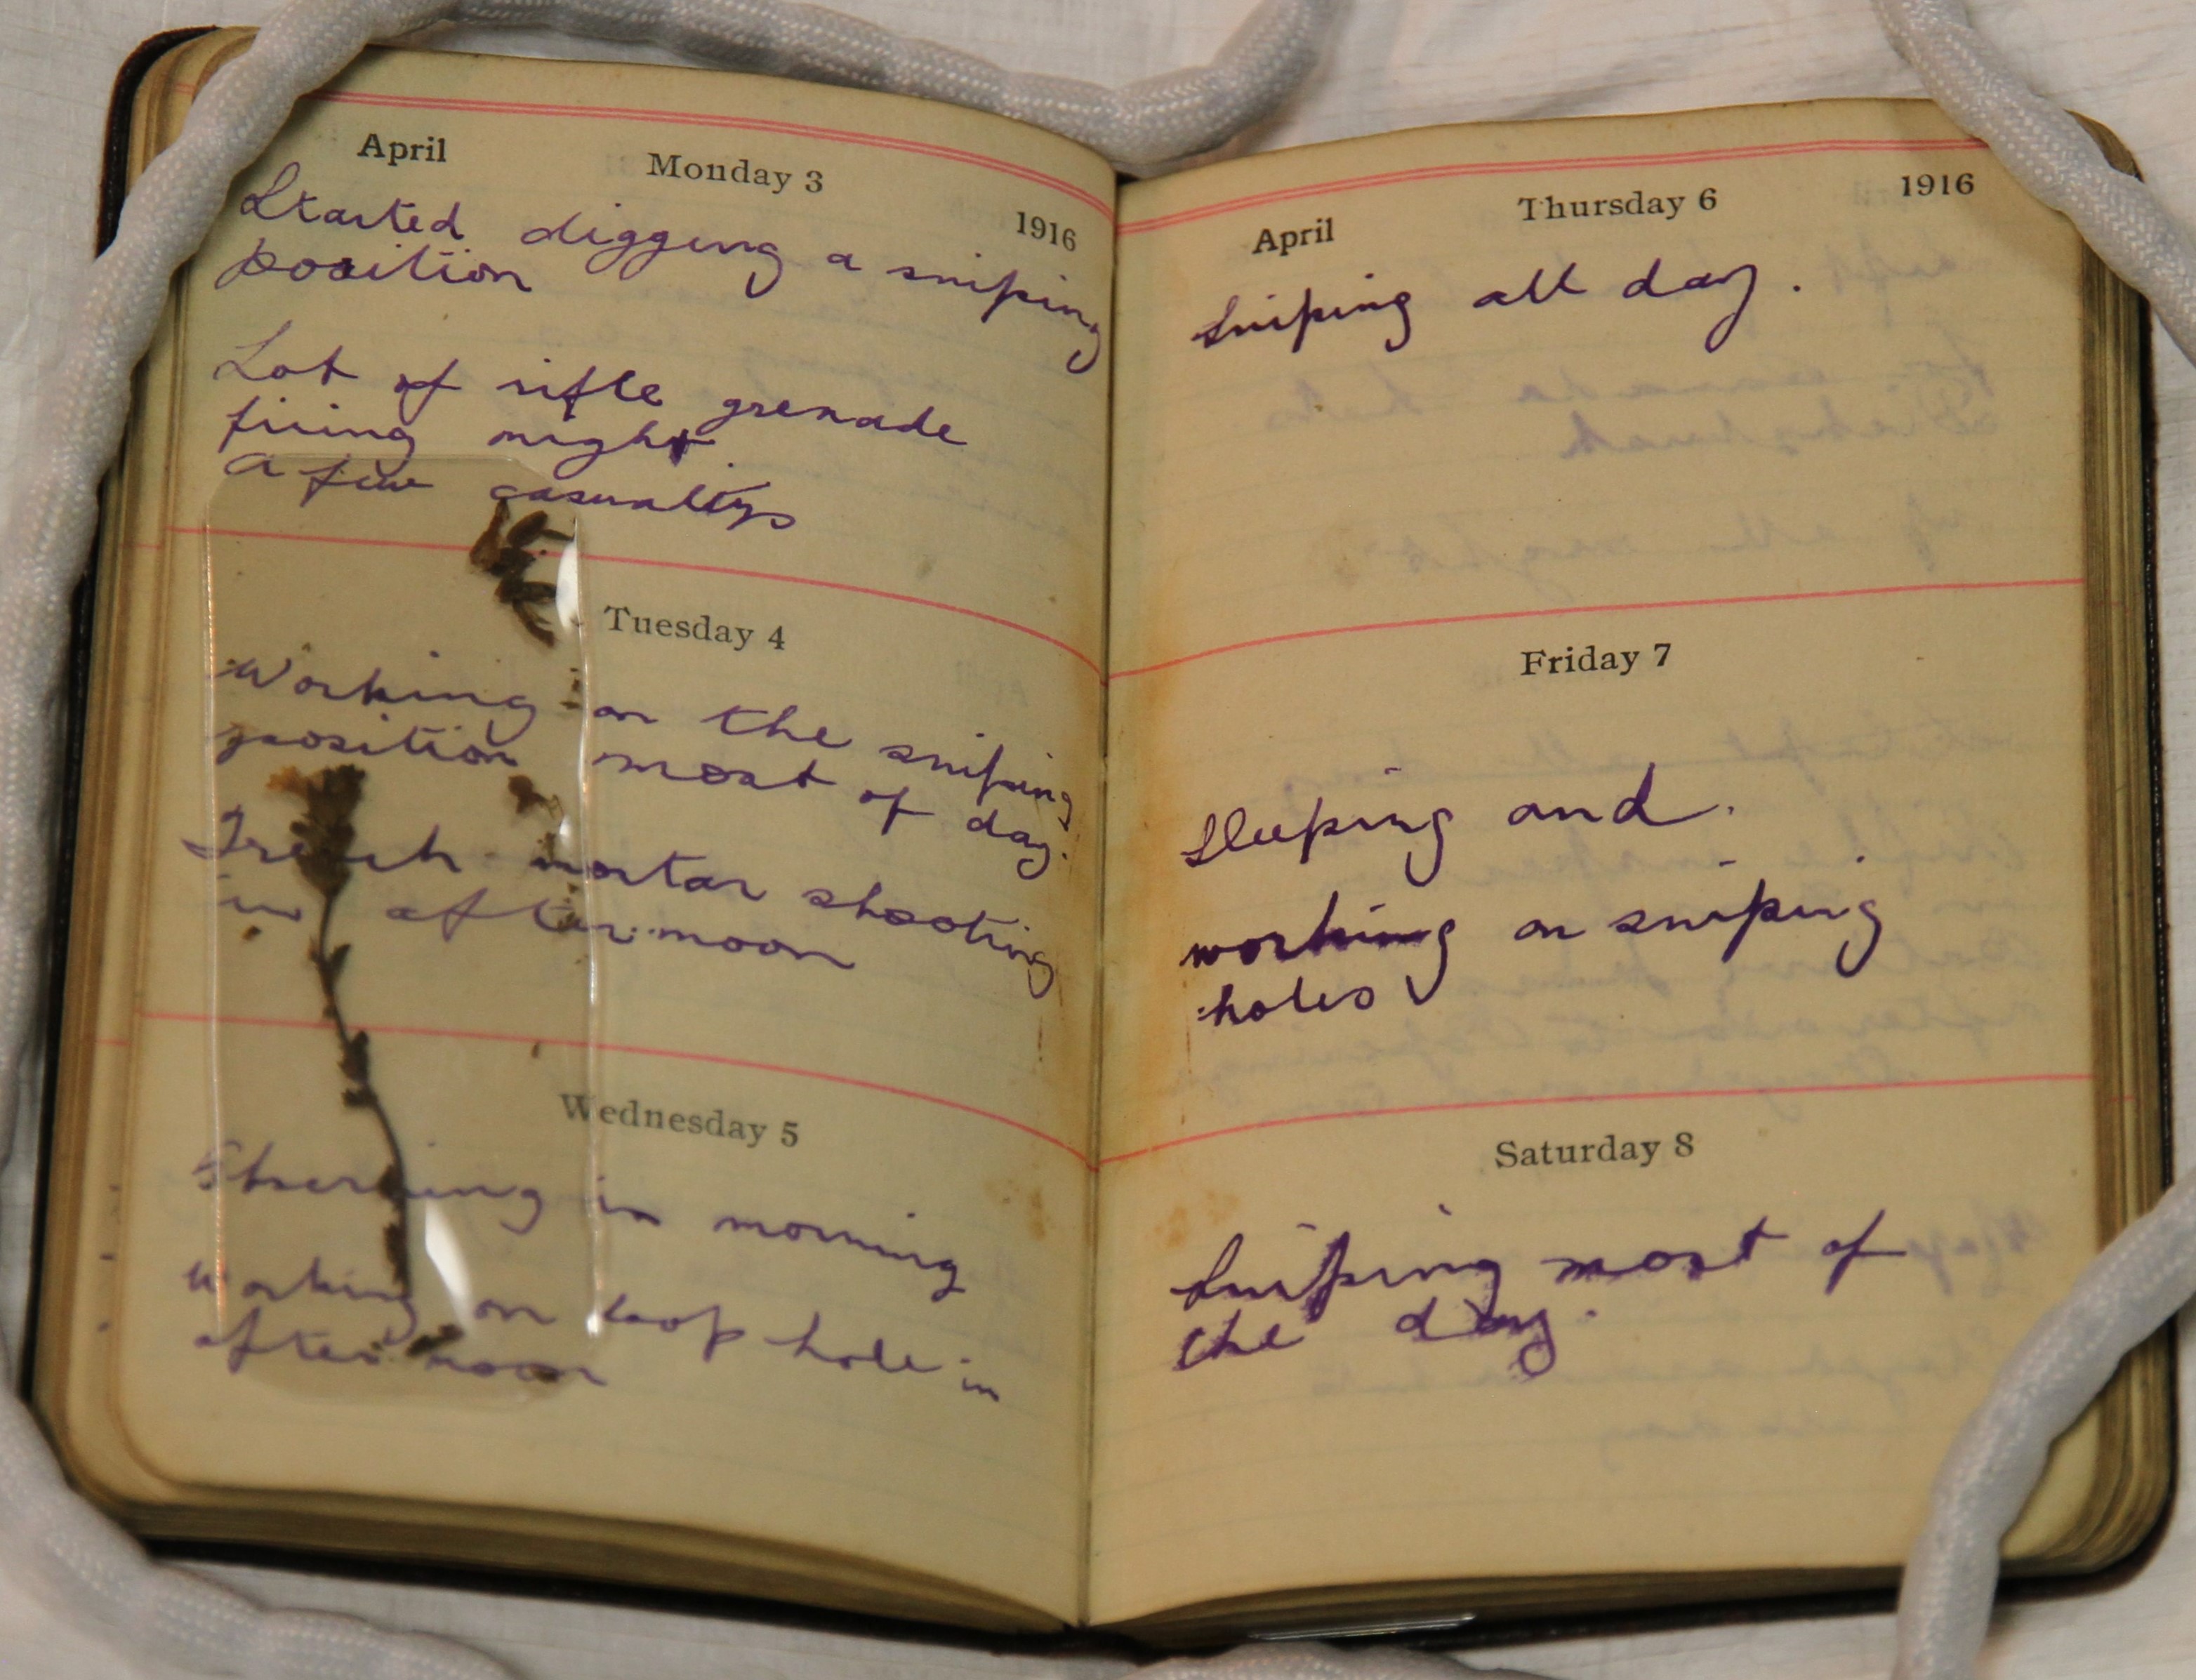 April Monday 3 1916
Started digging a sniping
position
Lot of rifle grenade
firing night
a few casualtys
Tuesday 4
Working on the sniping
position most of day.
Trench mortar shooting
in afternoon
Wednesday 5
in morning
Working on loop hole in
afternoon
April Thursday 6 1916
Sniping all day.
Friday 7
Sleeping and.
working on sniping
holes
Saturday 8
Sniping most of
the day.